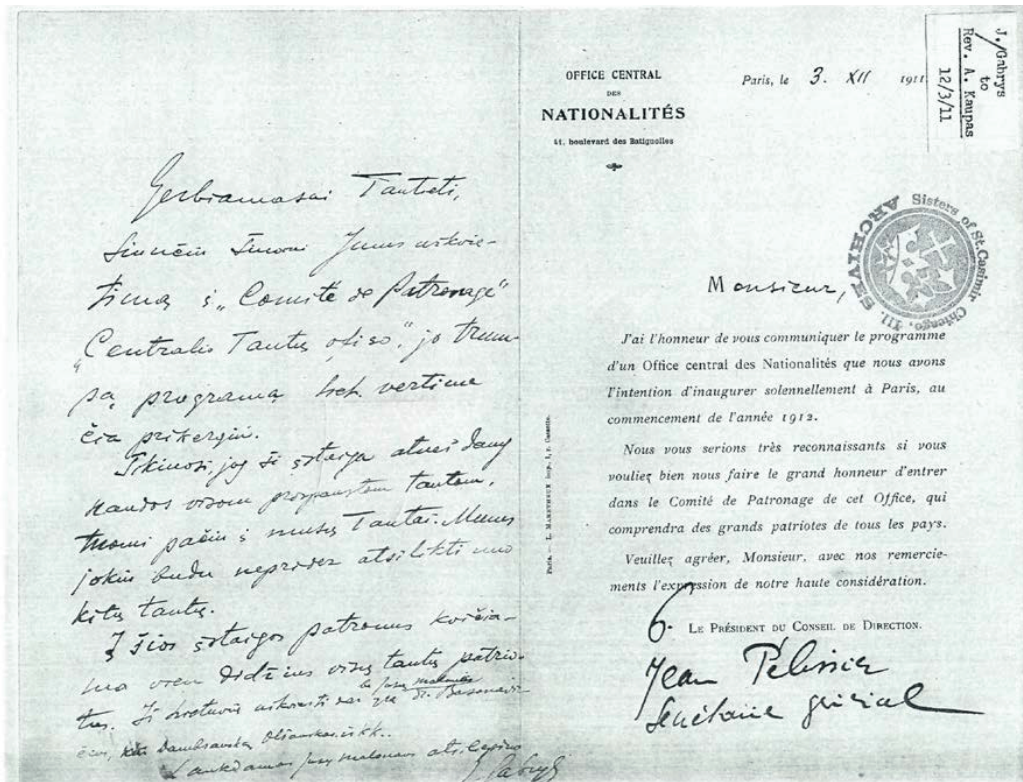 Gerbiamasai Tautieti,
Siunčiu šiuomi Jums užkvie-
timą į „Comité de Patronage"
„Centralio Tautų ofiso", jo trum-
pą programą
čia prikergiu.
Tikiuosi, jog ši įstaiga atneš daug
naudos visom tautom,
tuomi pačiu į musų Tautai. Mums
jokiu budu nepridera atsilikti nuo
kitų tautų.
Į šios įstaigos patronus kviečia-
ma vien didžius visų tautų patrio-
tus. Iš Lietuvių
Dambrauskas
Laukdamas
J. Gabrys
OFFICE CENTRAL
DES
NATIONALITÉS
41, boulevard des Batignolles
Paris, le 3. XII 1911
J. Gabrys
to
Rev. A. Kaupas
12/3/11
Sisters of St. Casimir
Chicago, Ill.
ARCHIVES
Monsieur,
J'ai l'honneur de vous communiquer le programme
d'un Office central des Nationalités que nous avons
l'intention d'inaugurer solennellement à Paris, au
commencement de l'année 1912.
Nous vous serions très reconnaissants si vous
vouliez bien nous faire le grand honneur d'entrer
dans le Comité de Patronage de cet Office, qui
comprendra des grands patriotes de tous les pays.
Veuillez agréer, Monsieur, avec nos remercie-
ments l'expression de notre haute considération.
LE PRÉSIDENT DU CONSEIL DE DIRECTION.
Jean Pélissier
Secrétaire général